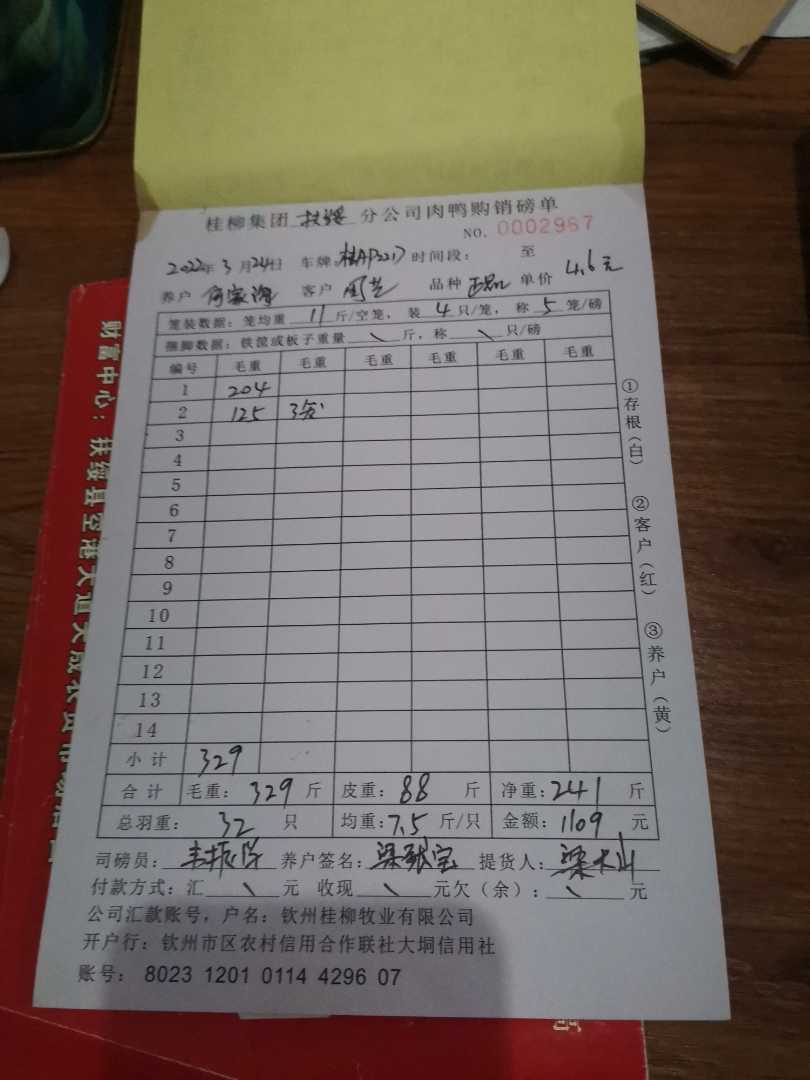 桂柳集团 扶绥 分公司肉鸭购销磅单
NO. 0002967
2022年 3月24日 车牌: 桂AP3217 时间段: 至
养户 客户 周芝 品种 正品 单价 4.6元
笼装数据: 笼均重 11 斤/空笼, 装 4 只/笼, 称 5 笼/磅
捆脚数据: 铁筐或板子重量 \ 斤, 称 \ 只/磅
编号 毛重 毛重 毛重 毛重 毛重 毛重
1 204
2 125 3笼
3
4
5
6
7
8
9
10
11
12
13
14
小计 329
合计 毛重: 329 斤 皮重: 88 斤 净重: 241 斤
总羽重: 32 只 均重: 7.5 斤/只 金额: 1109 元
司磅员: 养户签名: 提货人: 梁大山
付款方式: 汇 \ 元 收现 \ 元欠(余): \ 元
公司汇款账号, 户名: 钦州桂柳牧业有限公司
开户行: 钦州市区农村信用合作联社大垌信用社
账号: 8023 1201 0114 4296 07
①存根(白) ②客户(红) ③养户(黄)
财富中心: 扶绥县空港大道天成农贸市场